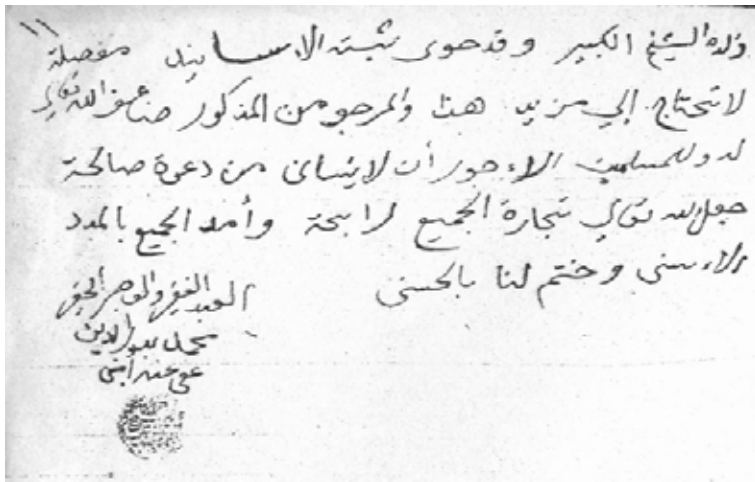 ١١
ولده الشيخ الكبير وقد حوى ثبته الاسانيد مفصلة
لا تحتاج إلي مزيد هذا والمرجو من المذكور ضاعف الله تعالي
له وللمسلمين الاءجور أن لا ينساني من دعوة صالحة
جعل الله تعالي تجارة الجميع رابحة وأمد الجميع بالمدد
الاءسنى وختم لنا بالحسنى
العبد الفقير والعاجز الحقير
محمد بدر الدين
عفي عنه آمين